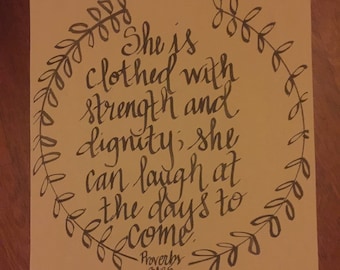 She is
clothed with
strength and
dignity; she
can laugh at
the days to
come.
Proverbs